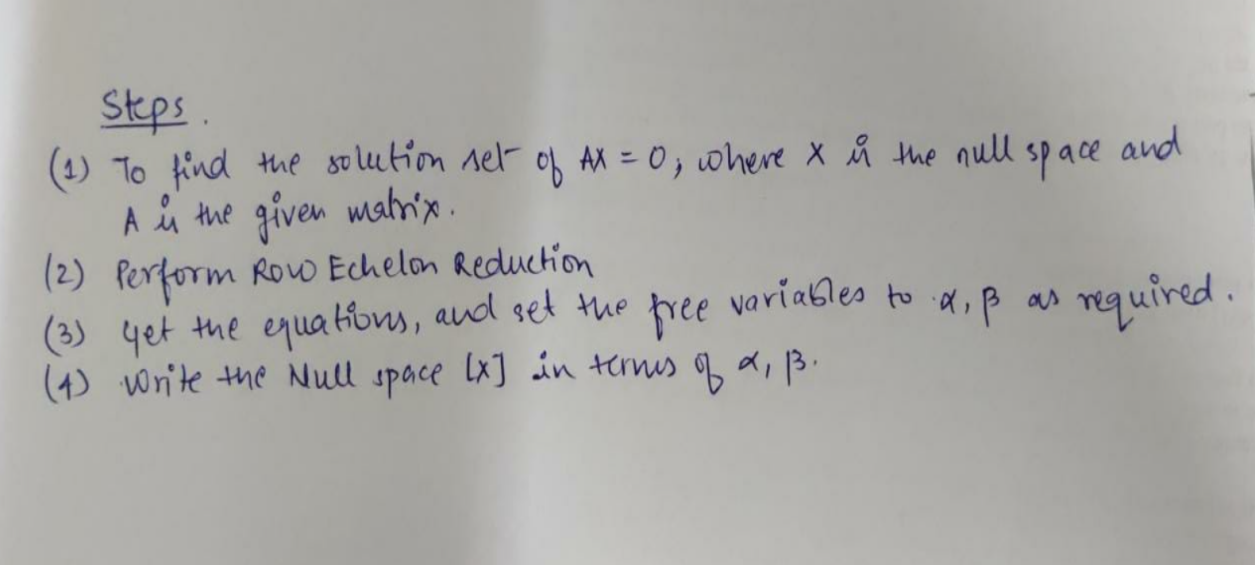 Steps.
(1) To find the solution set of AX = 0, where X is the null space and
A is the given matrix.
(2) Perform Row Echelon Reduction
(3) Get the equations, and set the free variables to α, β as required.
(4) Write the Null space [X] in terms of α, β.